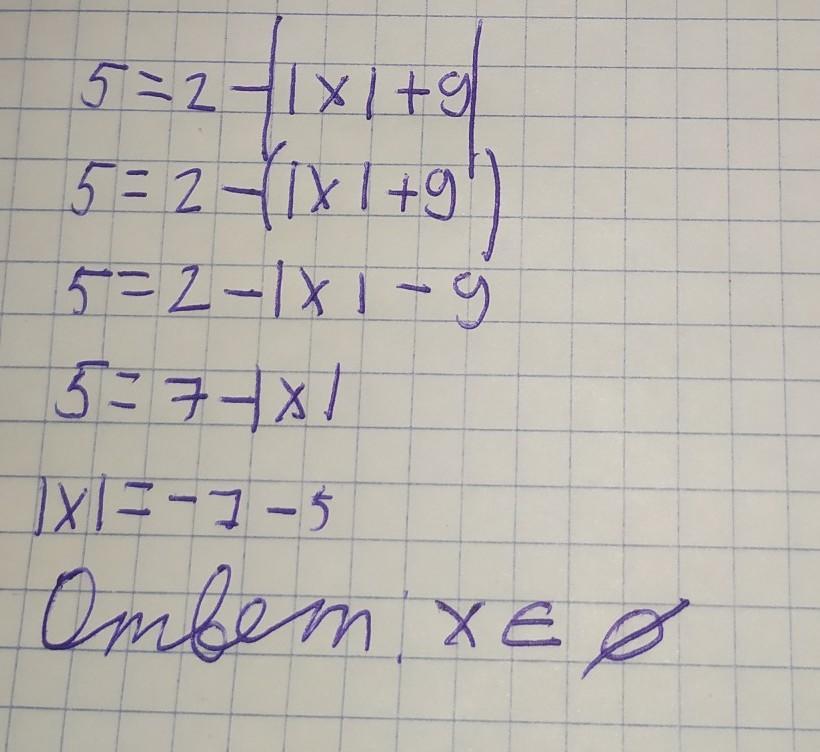 5=2-||x|+9|
5=2-(|x|+9)
5=2-|x|-9
5=7-|x|
|x|=-7-5
Ответ: x∈∅